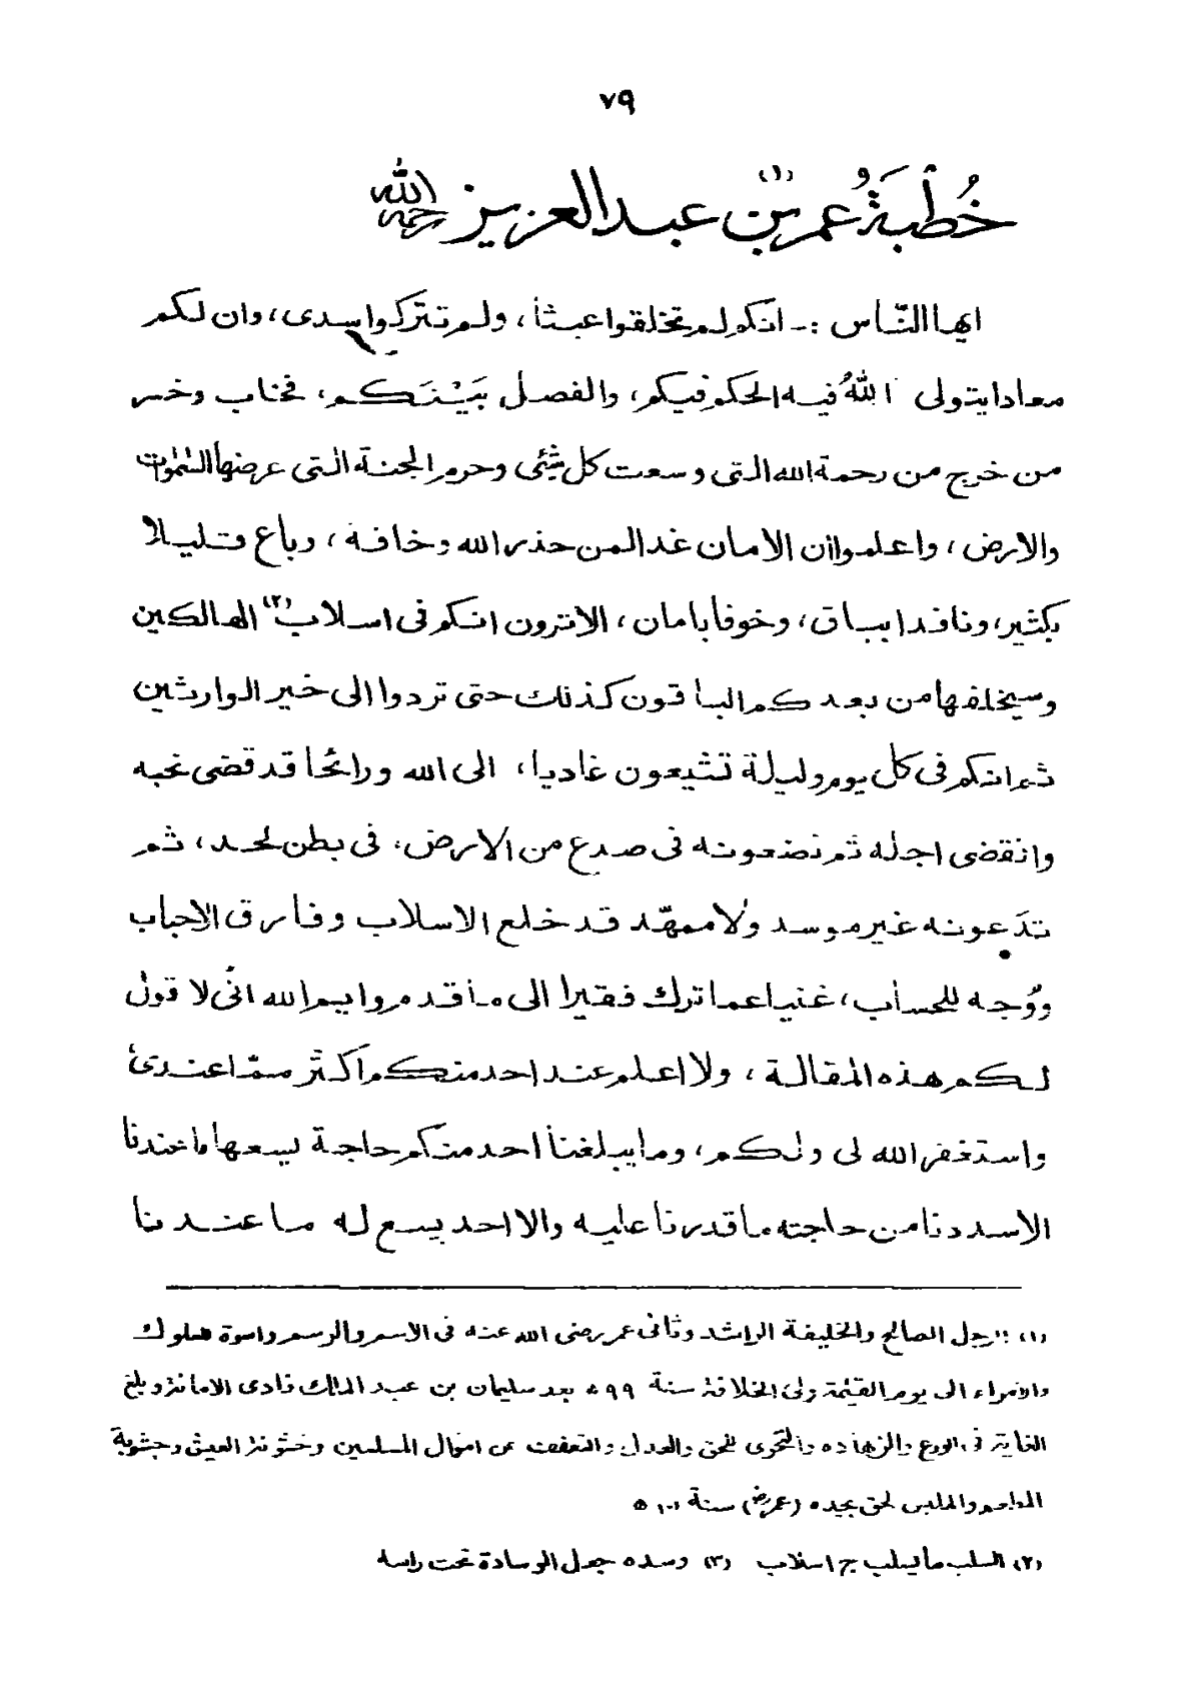 ٧٩
خُطْبَةُ عمر بن (١) عبد العزيز رحمه الله
ايها النّاس :- انكم لم تخلقوا عبثا، ولم تتركوا سدى، وان لكم
معادا يتولى اللهُ فيه الحكم فيكم، والفصل بَيْنَكم، فخاب وخسر
من خرج من رحمة الله التى وسعت كل شئى وحرم الجنة التى عرضها السمٰوات
والارض، واعلموا ان الامان غدا لمن حذر الله وخافه، وباع قليلا
بكثير، ونافدا بباق، وخوفا بامان، الا ترون انكم فى اسلاب (٢) الهالكين
وسيخلفها من بعدكم الباقون كذلك حتى تردوا الى خير الوارثين
ثم انكم فى كل يوم وليلة تشيعون غاديا، الى الله ورائحا قد قضى نحبه
وانقضى اجله ثم تضعونه فى صدع من الارض، فى بطن لحد، ثم
تدَعونه غير موسد ولا ممهّد قد خلع الاسلاب وفارق الاحباب
ووُجه للحساب، غنيا عما ترك فقيرا الى ما قدم وايم الله انى لا قول
لكم هذه المقالة، ولا اعلم عند احد منكم اكثر ممّا عندى
واستغفر الله لى ولكم، وما يبلغنا احد منكم حاجة يسعها ما عندنا
الا سددنا من حاجته ما قدرنا عليه والا احد يسع له ما عندنا
(١) الرجل الصالح والخليفة الراشد وثانى عمر رضى الله عنه فى الاسم والرسم واسوة للملوك
والامراء الى يوم القيٰمة ولى الخلافة سنة ٩٩ ه بعد سليمان بن عبد الملك فادى الامانة وبلغ
الغاية فى الورع والزهاده والتحرى للحق والعدل والتعفف عن اموال المسلمين وخشونة العيش وجشوبة
المطعم والملبس لحق بجده (عمرؓ) سنة ١٠١ ه
(٢) السلب ما يسلب ج اسلاب (٣) وسده جعل الوسادة تحت راسه